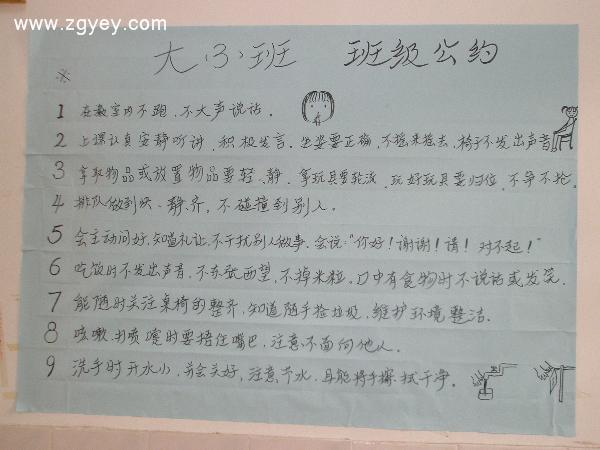 www.zgyey.com
大(3)班 班级公约
※
1 在教室内不跑,不大声说话.
2 上课认真安静听讲,积极发言.坐姿要正确,不摇来摇去,椅子不发出声音
3 拿取物品或放置物品要轻、静.拿玩具要轮流,玩好玩具要归位,不争不抢.
4 排队做到快、静、齐,不碰撞到别人.
5 会主动问好,知道礼让,不干扰别人做事.会说:"你好!谢谢!请!对不起!"
6 吃饭时不发出声音,不东张西望,不掉米粒,口中有食物时不说话或发笑.
7 能随时关注桌椅的整齐,知道随手捡垃圾,维护环境整洁.
8 咳嗽、打喷嚏时要捂住嘴巴,注意不面向他人.
9 洗手时开水小,并会关好,注意节水,且能将手擦拭干净.